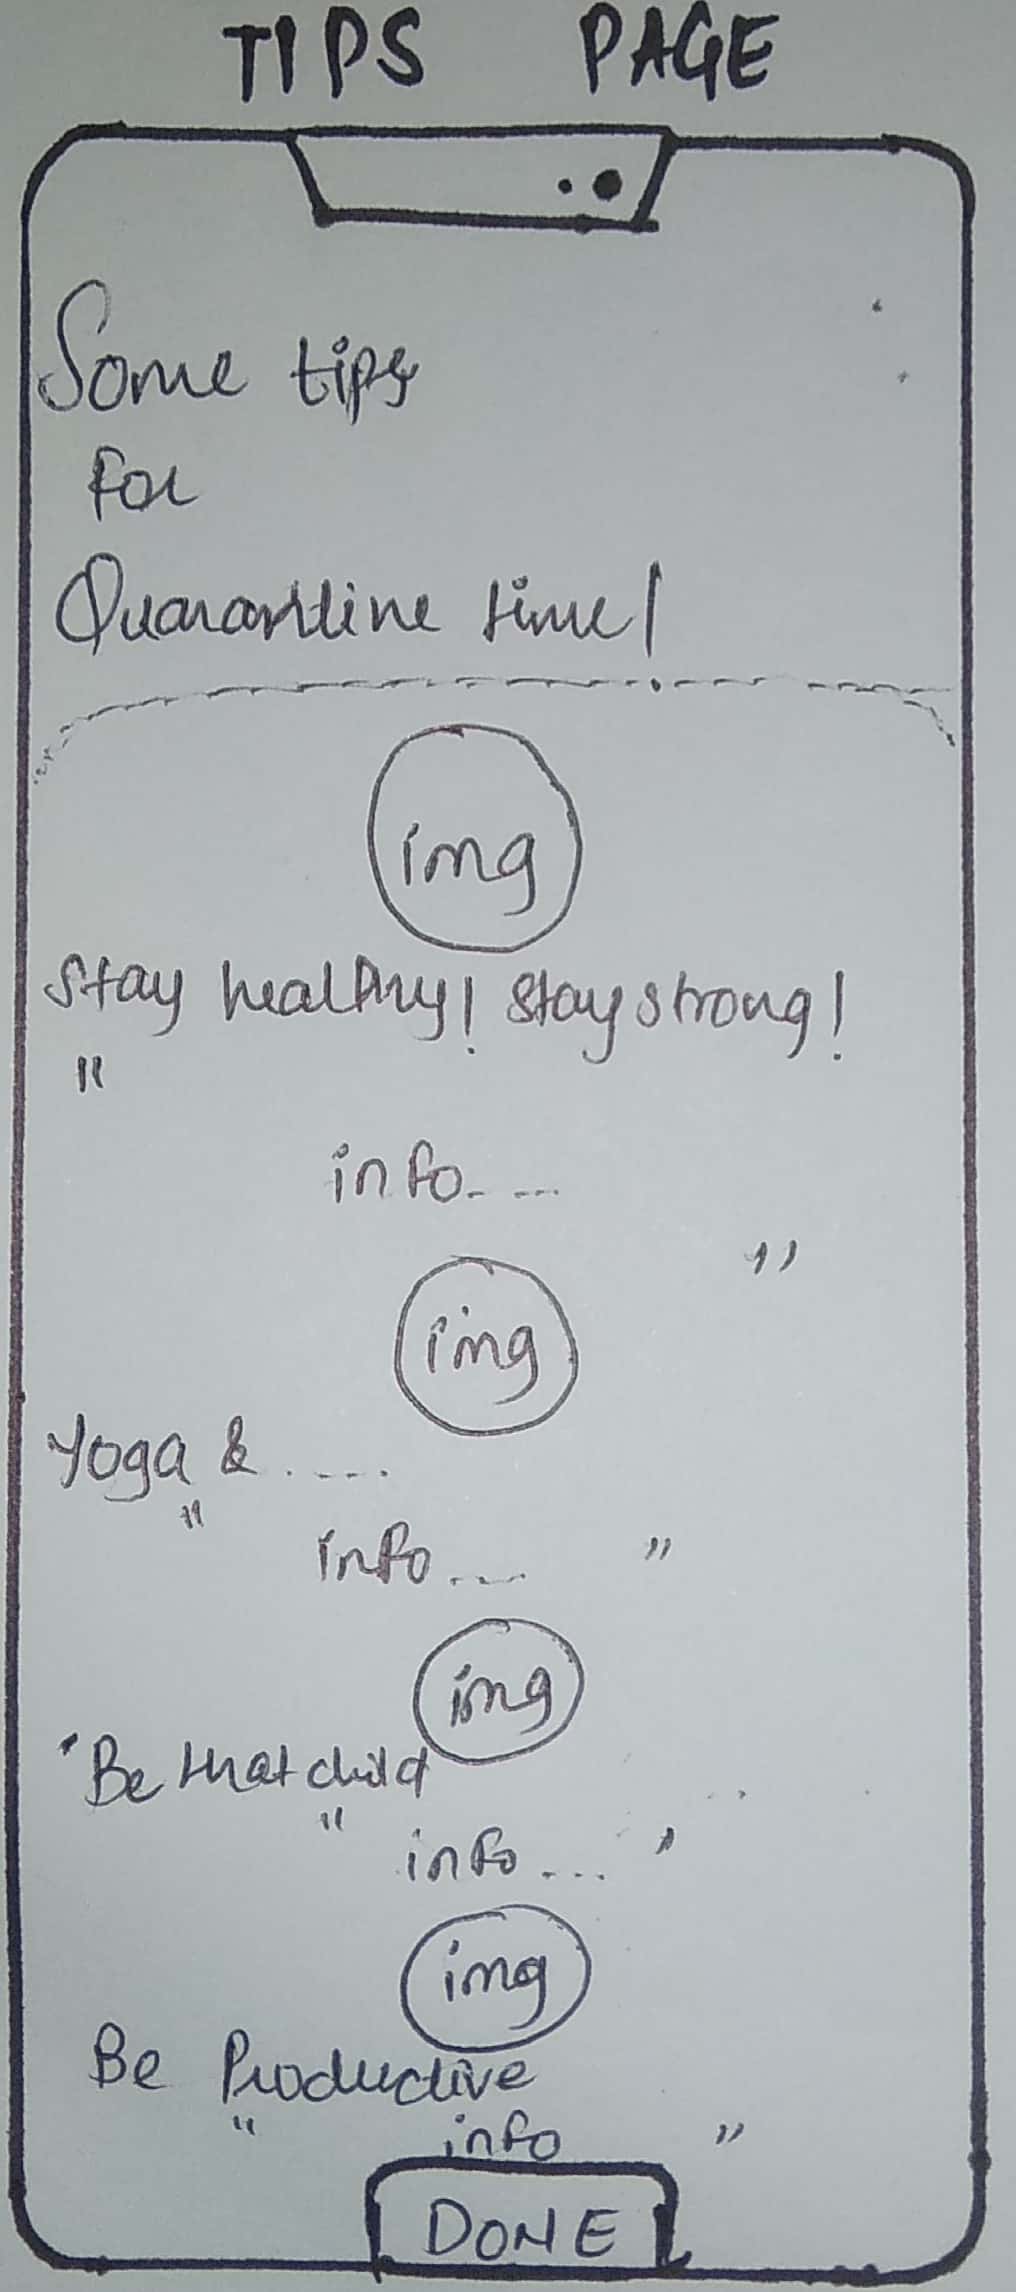 TIPS PAGE
Some tips
For
Quarantine time!
img
Stay healthy! Stay strong!
"
info.....
"
img
Yoga & .....
" info.... "
img
'Be that child
" info.... "
img
Be Productive
" info "
DONE